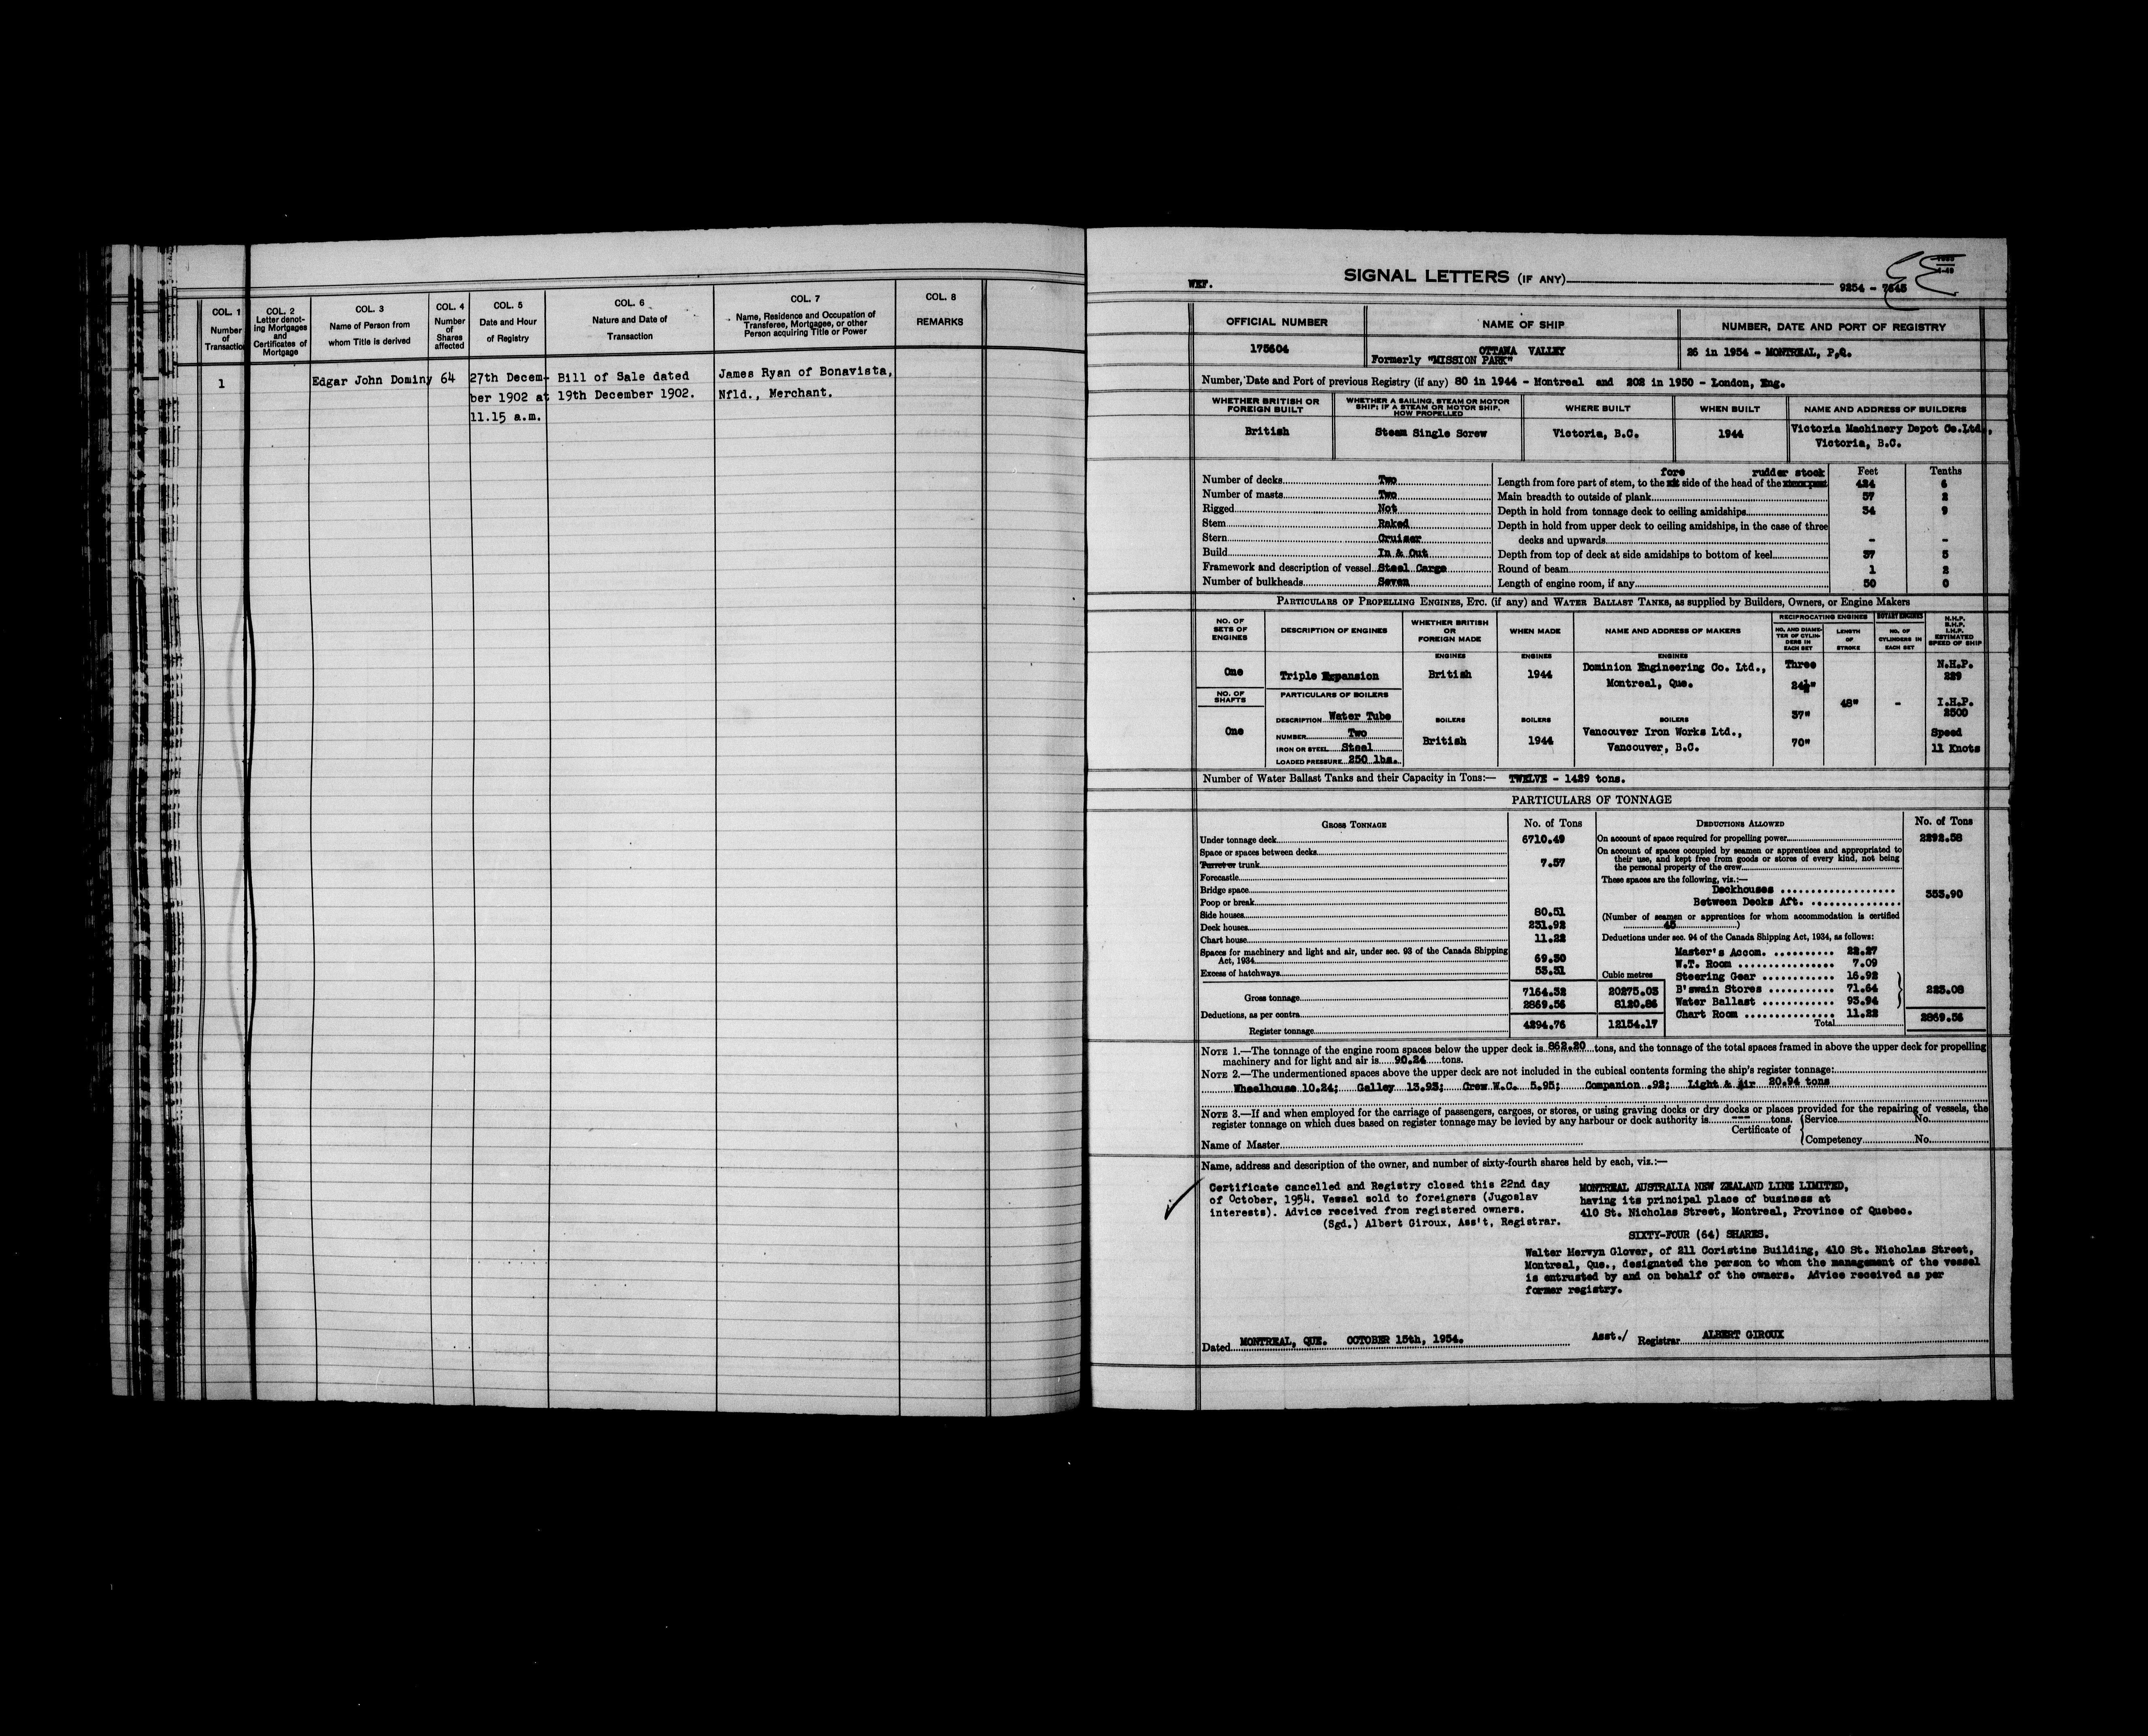 COL. 1
Number
of
Transaction
COL. 2
Letter denot-
ing Mortgages
and
Certificates of
Mortgage
COL. 3
Name of Person from
whom Title is derived
COL. 4
Number
of
Shares
affected
COL. 5
Date and Hour
of Registry
COL. 6
Nature and Date of
Transaction
COL. 7
Name, Residence and Occupation of
Transferee, Mortgagee, or other
Person acquiring Title or Power
COL. 8
REMARKS
1 Edgar John Dominy 64 27th Decem- Bill of Sale dated James Ryan of Bonavista,
ber 1902 at 19th December 1902. Nfld., Merchant.
11.15 a.m.
WKF. SIGNAL LETTERS (IF ANY)
9254 - 7645
OFFICIAL NUMBER NAME OF SHIP NUMBER, DATE AND PORT OF REGISTRY
175604 OTTAWA VALLEY 26 in 1954 - MONTREAL, P.Q.
Formerly "MISSION PARK"
Number, Date and Port of previous Registry (if any) 80 in 1944 - Montreal and 202 in 1950 - London, Eng.
WHETHER BRITISH OR
FOREIGN BUILT
WHETHER A SAILING, STEAM OR MOTOR
SHIP; IF A STEAM OR MOTOR SHIP,
HOW PROPELLED
WHERE BUILT WHEN BUILT NAME AND ADDRESS OF BUILDERS
British Steam Single Screw Victoria, B.C. 1944 Victoria Machinery Depot Co.Ltd.,
Victoria, B.C.
fore rudder stock Feet Tenths
Number of decks Two Length from fore part of stem, to the side of the head of the 424 6
Number of masts Two Main breadth to outside of plank 57 2
Rigged Not Depth in hold from tonnage deck to ceiling amidships 34 9
Stem Raked Depth in hold from upper deck to ceiling amidships, in the case of three
Stern Cruiser decks and upwards - -
Build In & Out Depth from top of deck at side amidships to bottom of keel 37 5
Framework and description of vessel Steel Cargo Round of beam 1 2
Number of bulkheads Seven Length of engine room, if any 50 0
PARTICULARS OF PROPELLING ENGINES, ETC. (if any) and WATER BALLAST TANKS, as supplied by Builders, Owners, or Engine Makers
NO. OF
SETS OF
ENGINES
DESCRIPTION OF ENGINES
WHETHER BRITISH
OR
FOREIGN MADE
WHEN MADE
NAME AND ADDRESS OF MAKERS
RECIPROCATING ENGINES
NO. AND DIAME-
TER OF CYLIN-
DERS IN
EACH SET
LENGTH
OF
STROKE
ROTARY ENGINES
NO. OF
CYLINDERS IN
EACH SET
N.H.P.
B.H.P.
I.H.P.
ESTIMATED
SPEED OF SHIP
ENGINES ENGINES ENGINES
One Triple Expansion British 1944 Dominion Engineering Co. Ltd.,
Montreal, Que.
Three
24½"
37"
70"
48"
-
N.H.P.
229
I.H.P.
2500
Speed
11 Knots
NO. OF
SHAFTS
One
PARTICULARS OF BOILERS
DESCRIPTION Water Tube
NUMBER Two
IRON OR STEEL Steel
LOADED PRESSURE 250 lbs.
BOILERS BOILERS BOILERS
British 1944 Vancouver Iron Works Ltd.,
Vancouver, B.C.
Number of Water Ballast Tanks and their Capacity in Tons:— TWELVE - 1429 tons.
PARTICULARS OF TONNAGE
GROSS TONNAGE No. of Tons
Under tonnage deck 6710.49
Space or spaces between decks
Turret or trunk 7.57
Forecastle
Bridge space
Poop or break
Side houses 80.51
Deck houses 231.92
Chart house 11.22
Spaces for machinery and light and air, under sec. 93 of the Canada Shipping
Act, 1934 69.30
Excess of hatchways 53.31
Cubic metres
Gross tonnage 7164.32 20275.03
Deductions, as per contra 2869.56 8120.86
Register tonnage 4294.76 12154.17
DEDUCTIONS ALLOWED No. of Tons
On account of space required for propelling power 2292.58
On account of spaces occupied by seamen or apprentices and appropriated to
their use, and kept free from goods or stores of every kind, not being
the personal property of the crew
These spaces are the following, viz.:—
Deckhouses
Between Decks Aft. 353.90
(Number of seamen or apprentices for whom accommodation is certified
45)
Deductions under sec. 94 of the Canada Shipping Act, 1934, as follows:
Master's Accom. 22.27
W.T. Room 7.09
Steering Gear 16.92
B'swain Stores 71.64 223.08
Water Ballast 93.94
Chart Room 11.22
Total 2869.56
NOTE 1.—The tonnage of the engine room spaces below the upper deck is 862.20 tons, and the tonnage of the total spaces framed in above the upper deck for propelling
machinery and for light and air is 90.24 tons.
NOTE 2.—The undermentioned spaces above the upper deck are not included in the cubical contents forming the ship's register tonnage:
Wheelhouse 10.24; Galley 13.93; Crew W.C. 5.95; Companion .92; Light & Air 20.94 tons
NOTE 3.—If and when employed for the carriage of passengers, cargoes, or stores, or using graving docks or dry docks or places provided for the repairing of vessels, the
register tonnage on which dues based on register tonnage may be levied by any harbour or dock authority is --- tons.
Certificate of
Service No.
Competency No.
Name of Master
Name, address and description of the owner, and number of sixty-fourth shares held by each, viz.:—
Certificate cancelled and Registry closed this 22nd day
of October, 1954. Vessel sold to foreigners (Jugoslav
interests). Advice received from registered owners.
(Sgd.) Albert Giroux, Ass't, Registrar.
MONTREAL AUSTRALIA NEW ZEALAND LINE LIMITED,
having its principal place of business at
410 St. Nicholas Street, Montreal, Province of Quebec.
SIXTY-FOUR (64) SHARES.
Walter Mervyn Glover, of 211 Coristine Building, 410 St. Nicholas Street,
Montreal, Que., designated the person to whom the management of the vessel
is entrusted by and on behalf of the owners. Advice received as per
former registry.
Dated MONTREAL, QUE. OCTOBER 15th, 1954.
Asst./ Registrar ALBERT GIROUX